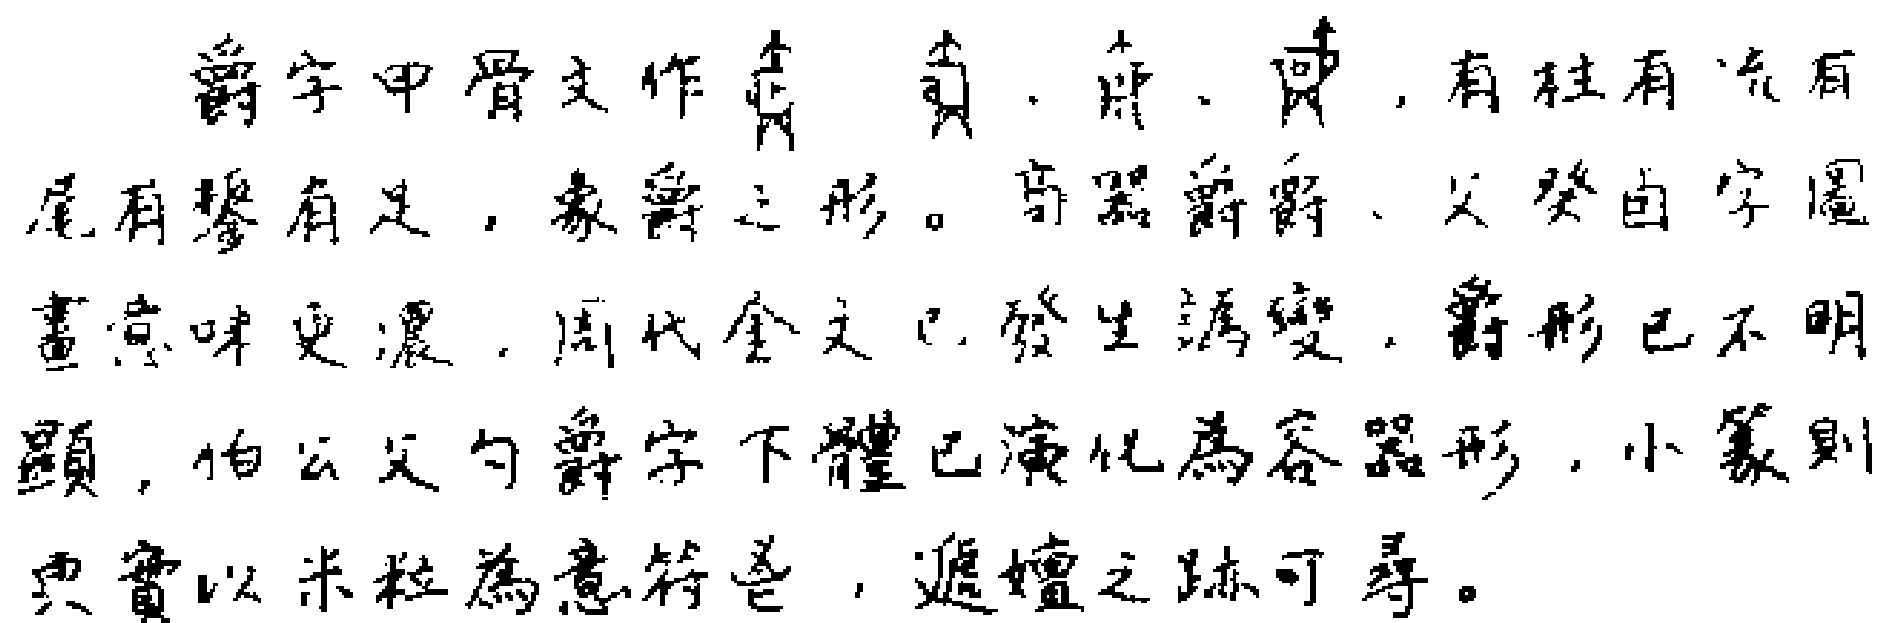 爵字甲骨文作、、,有柱有流有
尾有鋬有足,象爵之形。商器爵爵、父癸卣字圖
畫意味更濃,周代金文已發生譌變,爵形已不明
顯,伯公父勺爵字下體已演化為容器形,小篆則
實以米粒為意符鬯,遞嬗之跡可尋。